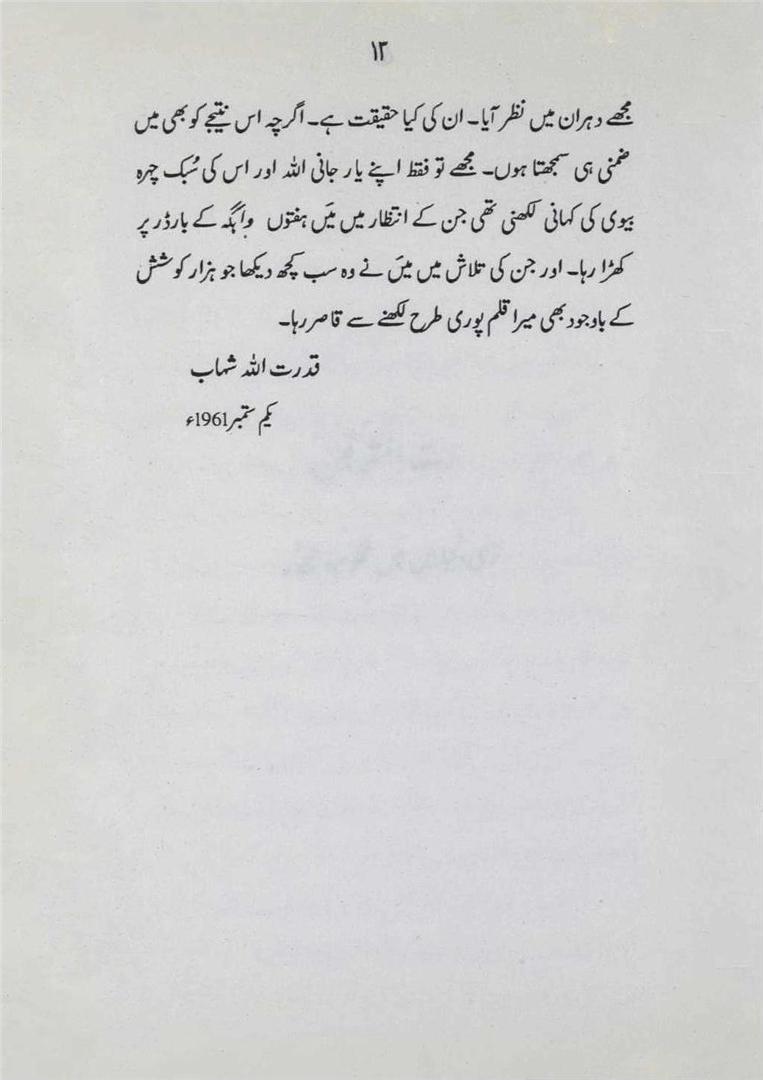 ۱۳
مجھے دہران میں نظر آیا۔ ان کی کیا حقیقت ہے۔ اگرچہ اس نتیجے کو بھی میں
ضمنی ہی سمجھتا ہوں۔ مجھے تو فقط اپنے یار جانی اللہ اور اس کی سُبک چہرہ
بیوی کی کہانی لکھنی تھی جن کے انتظار میں میَں ہفتوں واہگہ کے بارڈر پر
کھڑا رہا۔ اور جن کی تلاش میں میَں نے وہ سب کچھ دیکھا جو ہزار کوشش
کے باوجود بھی میرا قلم پوری طرح لکھنے سے قاصر رہا۔
قدرت اللہ شہاب
یکم ستمبر 1961ء